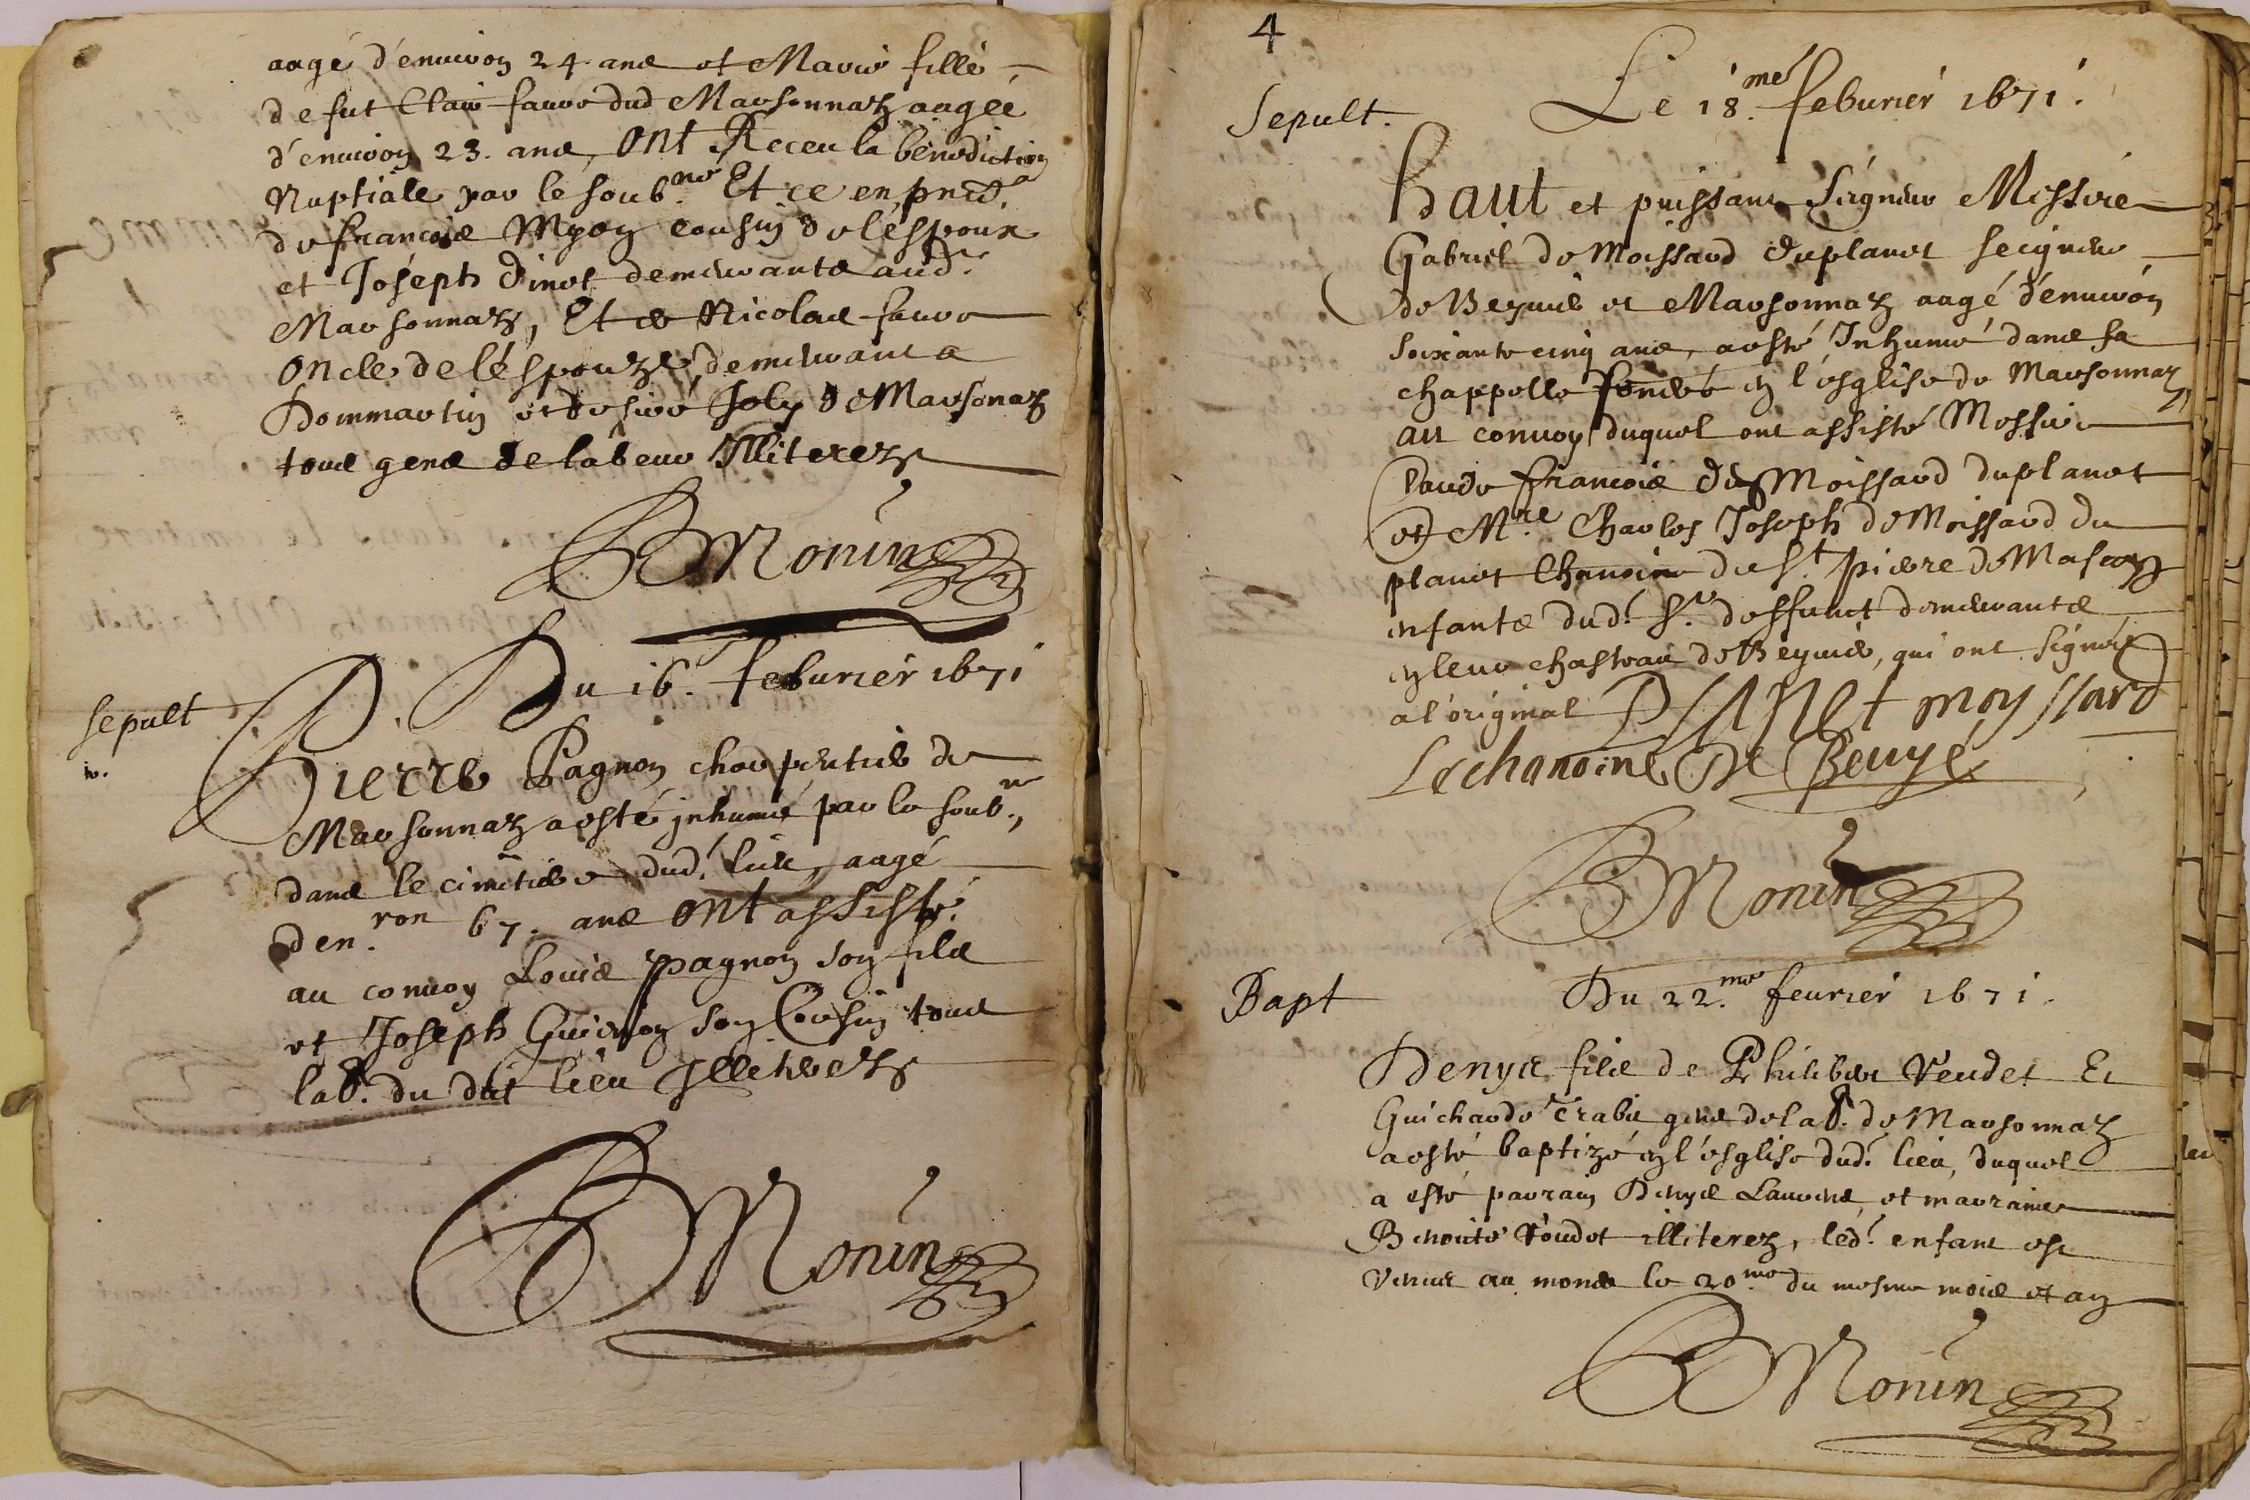 aagé d'enuiron 24. ans et Marie fille
de fut Claire faure dud Marsonnaz aagée
d'enuiron 23. ans, ONt Receu la benediction
Nuptiale par le soub.né Et ce en pnce.
de francois Myon cousin de léspoux
et Joséph dinet demeurants aud.
Marsonnaz, Et de Nicolas faure
Oncle de léspouze, demeurant a
Dommartin et desiré Joly de Marsonaz
tous gens de labeur Illiterez
BMonin
Sepult
Du 16. feburier 1671
Pierre Pagnon charpentier de
Marsonnaz a esté inhumé par le soub.né,
dans le cimitiere dud. lieu, aagé
den.ron 67. ans ONt assisté
au conuoy Louis pagnon son fils
et Joseph Guicion son Cousin tous
lab. du dit lieu Illiterez
BMonin
4
Sepult.
Le 18.me feburier 1671.
haut et puissant Seigneur Messire
Gabriel de Moissard duplanet seigneur
de Beyuié et Marsonnaz aagé d'enuiron
soixante cinq ans, a esté Inhumé dans sa
chappelle fondée en l'esglise de Marsonnaz
au conuoy duquel ont assisté Messire
Claude francois de Moissard duplanet
et M.re Charles Joseph de Moissard du
planet Chanoine de S.t pierre de Mascon
enfants dud. S.r deffunct demeurants
en leur chasteau de Beyuié, qui ont signés
a l'original PLANet moyssard
Le chanoine De Beuyé
BMonin
Bapt
Du 22.me feurier 1671.
Denys fils de Philibert Veudet Et
Guicharde Trabie gens de lab. de Marsonnaz
a esté baptizé en l'ésglise dud. lieu, duquel
a esté parrain Denys Laurent, et marraine
Benoite Veudet illiterez, led. enfant est
Venue au monde le 20.me du mesme mois et an
BMonin